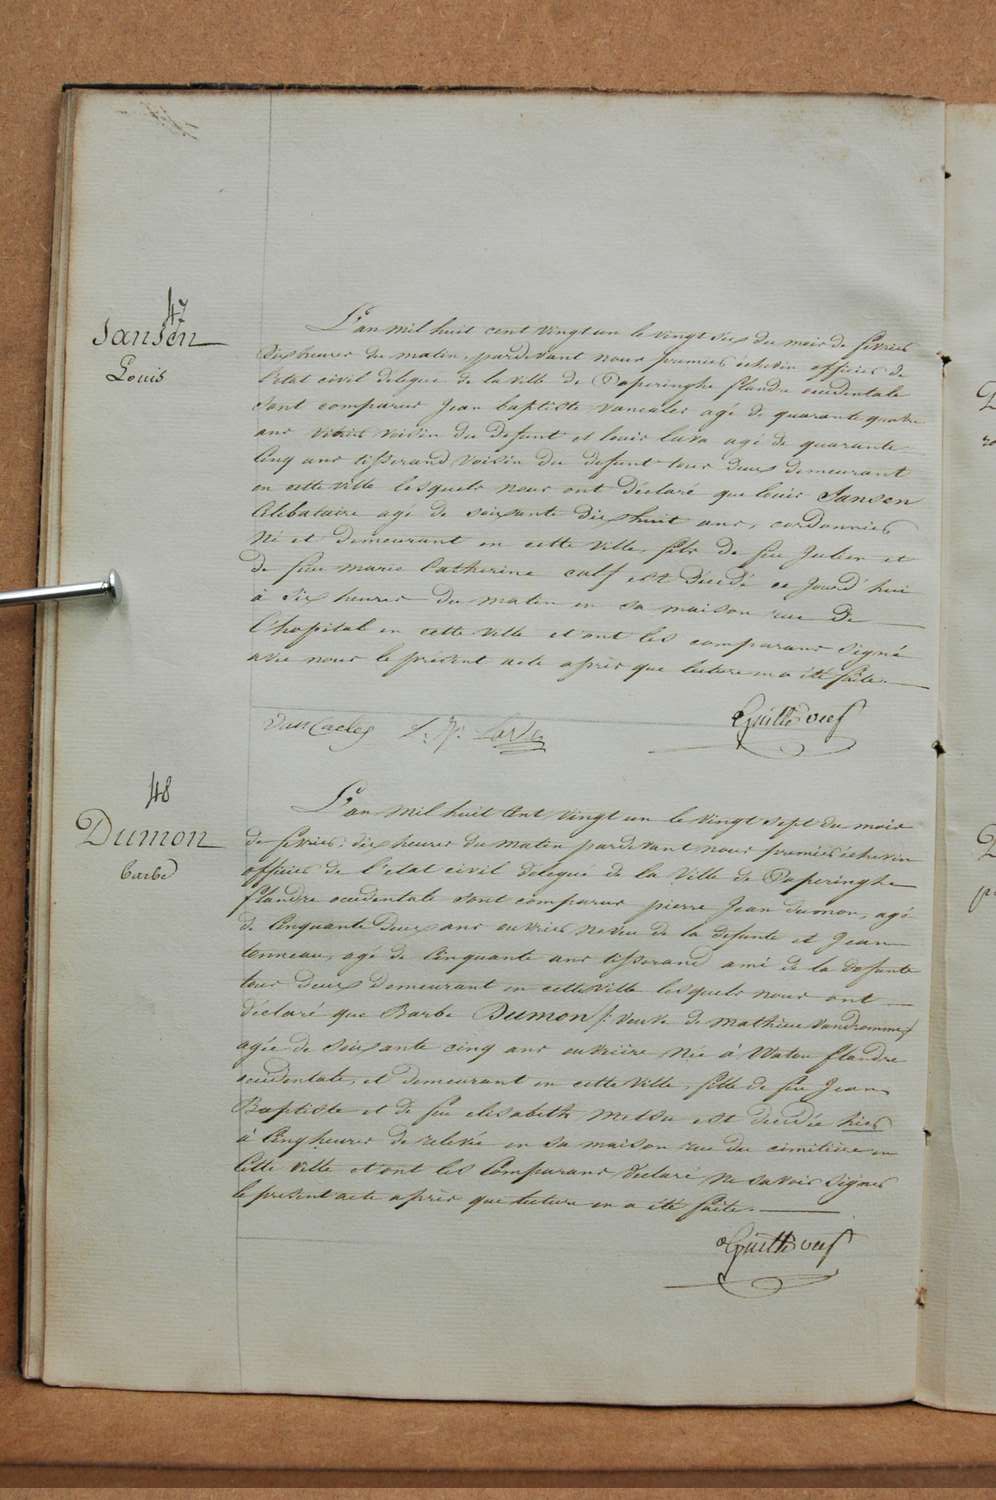 47
Jansen
Louis
L'an mil huit cent vingt un le vingt six du mois de fevrier
dix heures du matin, pardevant nous premier échevin officier de
l'etat civil délegué de la ville de Poperinghe flandre occidentale
sont comparus Jean baptiste vancaeles agé de quarante quatre
ans voisin du defunt et louis agé de quarante
cinq ans tisserand voisin du defunt tous deux demeurant
en cette ville lesquels nous ont déclaré que louis Jansen
Célibataire agé de soixante dix huit ans, cordonnier
né et demeurant en cette ville, fils de feu Julien et
de feue marie Catherine calf est décédé ce jourd'hui
à six heures du matin en sa maison rue de
l'hopital en cette ville et ont les comparans signé
avec nous le présent acte après que lecture en a été faite.
Vancaeles
48
Dumon
barbe
L'an mil huit Cent vingt un le vingt sept du mois
de fevrier, dix heures du matin pardevant nous premier échevin
officier de l'etat civil delegué de la ville de Poperinghe
flandre occidentale sont comparus pierre Jean dumon, agé
de Cinquante deux ans ouvrier neveu de la defunte et Jean
tonneau, agé de Cinquante ans tisserand ami de la defunte
tous deux demeurant en cette ville lesquels nous ont
déclaré que Barbe Dumon /: veuve de mathieu vandromme :/
agée de soixante cinq ans ouvrière née à Watou flandre
occidentale, et demeurant en cette ville, fille de feu Jean
Baptiste et de feu elisabeth metsu est decédée hier
à Cinq heures de relevée en sa maison rue du cimetière en
Cette ville et ont les Comparans déclaré ne savoir signer
le present acte après que lecture en a été faite.